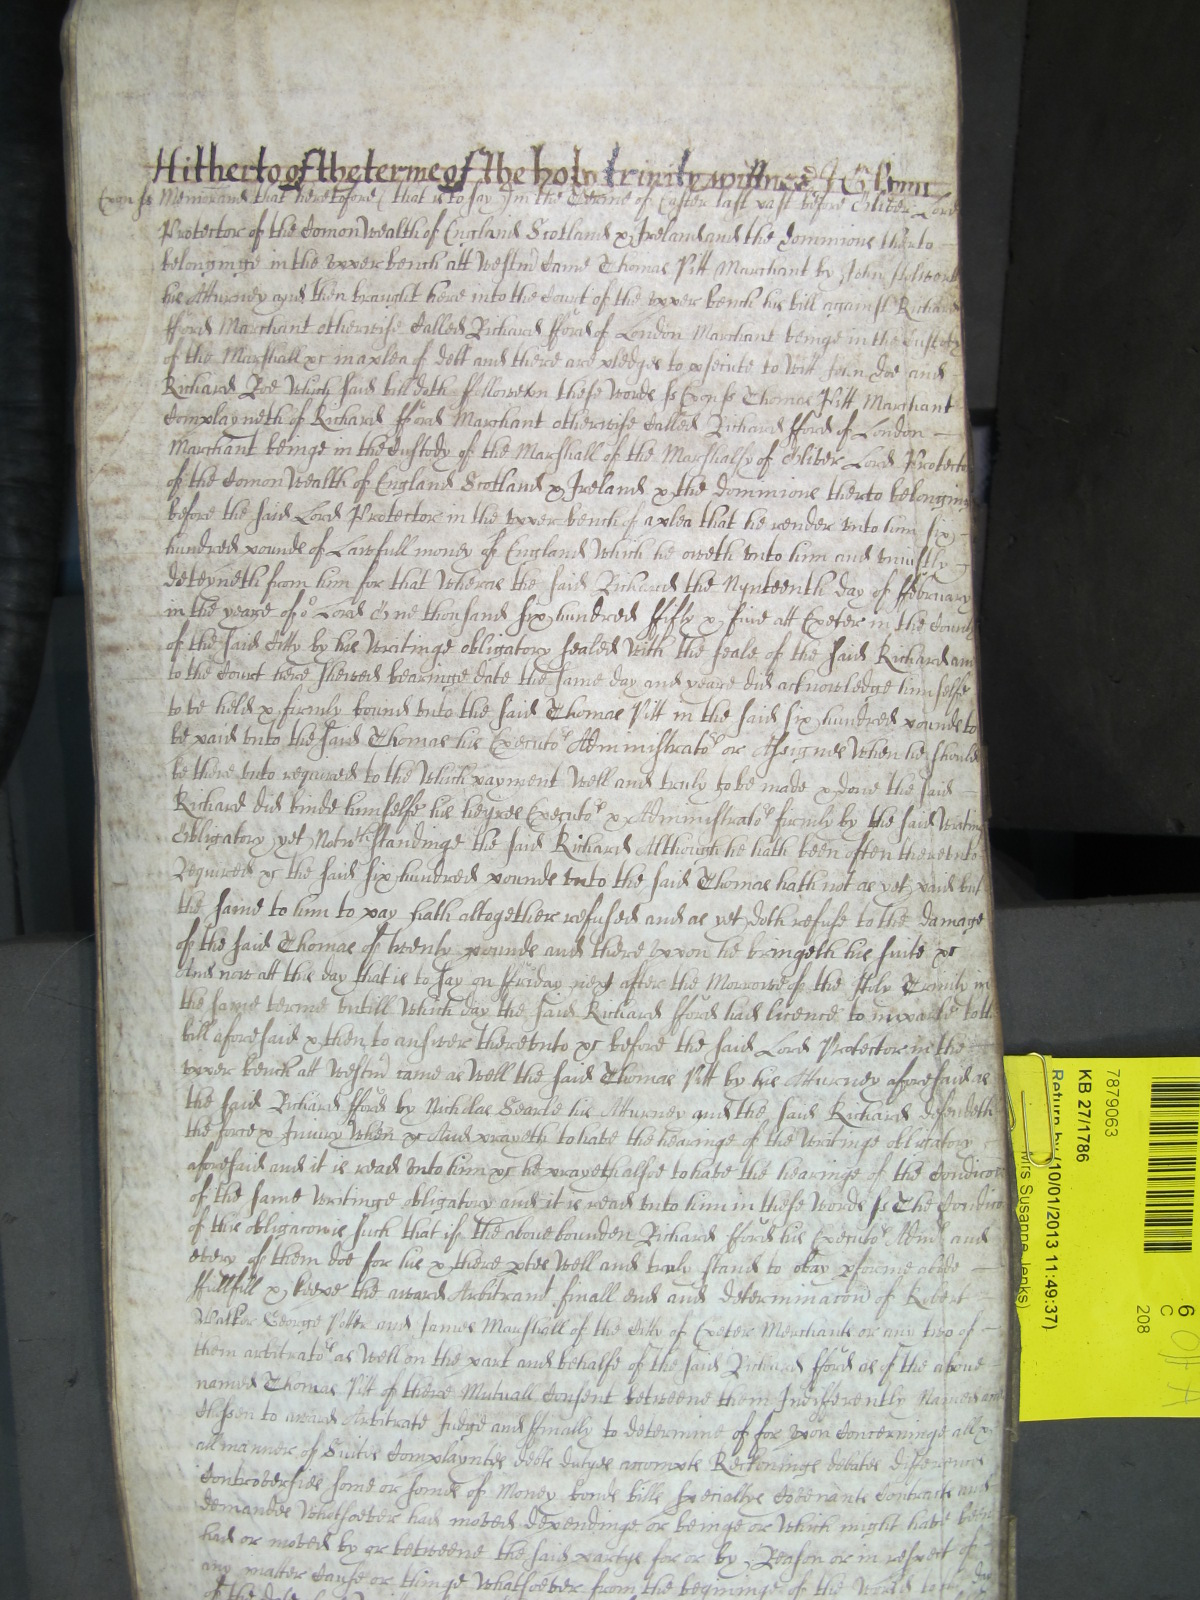 Hitherto of the terme of the holy trinity wittnes J Glynn
Exon ss Memorand that heretofore (that is to say) In the Terme of Easter last past before Oliver Lord
Protector of the Comon Wealth of England Scotland & Ireland and the dominions therto
belonginge in the upper bench att Westmr came Thomas Pitt Marchant by John
his Atturney and then brought here into the Court of the upper bench his bill against Richard
fford Marchant otherwise called Richard fford of London Marchant beinge in the Custody
of the Marshall &c in a plea of debt and there are pledges to psecute to witt John doe and
Richard Roe Which said bill doth follow in these Words ss Exon ss Thomas Pitt Marchant
Complayneth of Richard fford Marchant otherwise called Richard fford of London
Marchant beinge in the Custody of the Marshall of the Marshalsy of Oliver Lord Protector
of the Comon Wealth of England Scotland & Ireland & the dominions therto belonging
before the said Lord Protector in the upper bench of a plea that he render unto him six
hundred pounds of Lawfull money of England Which he oweth unto him and uniustly
deteyneth from him for that Wheras the said Richard the Nynteenth day of ffebruary
in the yeare of or Lord One thousand six hundred ffifty & five att Exeter in the County
of the said Citty by his Writinge obligatory sealed With the seale of the said Richard and
to the Court here shewed bearinge date the same day and yeare did acknowledge himselfe
to be held & firmly bound unto the said Thomas Pitt in the said six hundred pounds to
be paid unto the said Thomas his Executors Administrators or Assignes When he should
be there unto required to the Which payment Well and truly to be made & done the said
Richard did binde himselfe his heyres Executors & Administrators firmly by the said Writing
Obligatory yet Notwthstandinge the said Richard Although he hath been often thereunto
Required &c the said six hundred pounds unto the said Thomas hath not as yet paid but
the same to him to pay hath altogether refused and as yet doth refuse to the damage
of the said Thomas of twenty pounds and there upon he bringeth his suite &c
And now att this day that is to say on ffriday next after the Morrowe of the Holy Trinity in
the same terme untill Which day the said Richard fford had licence to imparle to the
bill aforesaid & then to answer thereunto &c before the said Lord Protector in the
upper bench att Westmr came as Well the said Thomas Pitt by his Atturney aforesaid as
the said Richard fford by Nicholas Searle his Atturney and the said Richard defendeth
the force & Iniury When &c And prayeth to have the hearinge of the Writinge obligatory
aforesaid and it is read unto him &c he prayeth alsoe to have the hearinge of the Condicon
of the same Writinge obligatory and it is read unto him in these Words ss The Condicon
of this obligacon is such that if the above bounden Richard fford his Executors Admrs and
every of them doe for his & there ptes Well and truly stand to obay pforme abide
ffullfill & keepe the award Arbitramt finall end and determinacon of Robert
Walker George Potter and James Marshall of the Citty of Exeter Merchants or any two of
them arbitrators as Well on the part and behalfe of the said Richard fford as of the above
named Thomas Pitt of there Mutuall Consent betweene them Indifferently Named and
Chosen to award Arbitrate Judge and ffinally to determine of for upon Concerninge all &
all manner of Suites Complayntes debts dutyes accompts Reckonings debates differences
Controversies some or somes of Money bonds bills specialtys Covenants Contracts and
demandes Whatsoever had moved dependinge or beinge or Which might have been
had or moved by or betweene the said partys for or by Reason or in respect of
any matter Cause or thinge Whatsoever from the beginninge of the World to the day
of the date
7879063
KB 27/1786
Return by (10/01/2013 11:49:37)
Mrs Susanne Jenks)
6
C
208